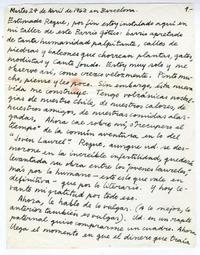 Martes 24 de Abril de 1962 en Barcelona. 1-
Estimado Roque, por fin estoy instalado aquí en
mi taller de este Barrio gótico: barrio apretado
de tanta humanidad palpitante, calles de
piedras y balcones que chorrean plantas, gatos
y canto fondo. Estoy muy solo y me
observo así como crezco velozmente. Pinto mu-
cho, pienso y leo poco. Sin embargo, esta nueva
vida me construye. Tengo volcánicas nostal-
gias de nuestro chile, de nuestros calores, de
nuestros amigos, de nuestras comidas alar-
gadas. Ahora cae sobre mi "
tiempo" de la común aventura en lo del
"Joven Laurel". Roque, aunque ud. se des-
morone en la increíble infertilidad, quedará
levantada su obra entre los "jovenes laureles",
más por lo humano - este es que vale en
definitiva - que por lo literario. Y hoy le-
vanto mi gratitud por todo ese.
Ahora, le hablo de lo vulgar. (a lo mejor, lo
anterior también es vulgar). Ud. en un rapto
paternal quiso comprarme un cuadro. Ahora
llega el momento en que el dinero que traía